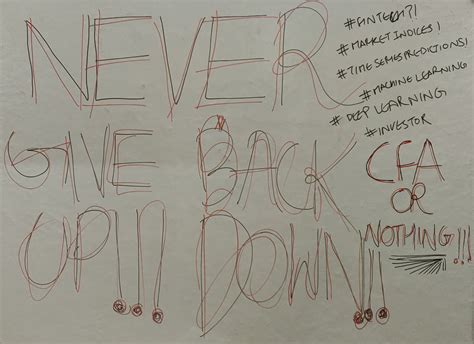 NEVER
GIVE BACK
UP!!! DOWN!!!
#FINTECH?!
#MARKET INDICES!
#TIME SERIES PREDICTIONS!
#MACHINE LEARNING
#DEEP LEARNING
#INVESTOR
CFA
OR
NOTHING!!!